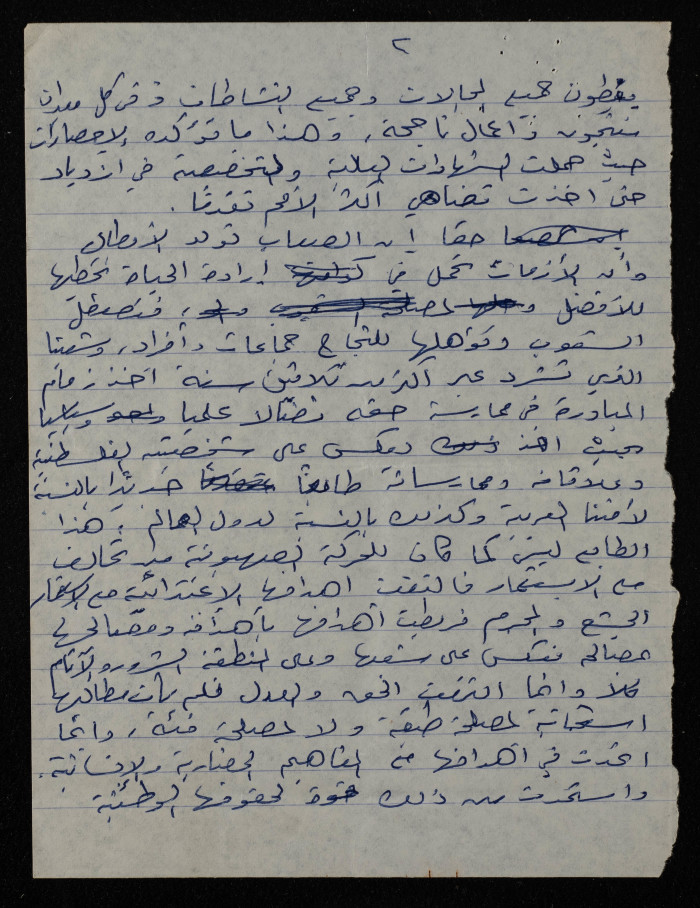 ٢
يغطون جميع المجالات وجميع النشاطات وفي كل ميدان
منتجون وأعمال ناجحة، وهذا ما تؤكده الإحصاءات
حيث حملت الشهادات العالية والتخصصية في ازدياد
حتى اخذت تضاهي أكثر الأمم تقدمًا.
حقا إن الصعاب تولد الأبطال
وأن الأزمات تحمل في إرادة الحياة تخطيها
للأفضل فتصقل
الشعوب وتؤهلها للنجاح جماعات وأفراد، وشعبنا
الذي تشرد عبر أكثر من ثلاثين سنة أخذ زمام
المبادرة في ممارسة حقه نضالا علميا وسياسيا
بحيث يعكس على شخصيته الفلسطينية
وعلاقاته وممارساته طابعا جديدا بالنسبة
لأمتنا العربية وكذلك بالنسبة لدول العالم، هذا
الطابع ليس كما كان للحركة الصهيونية من تحالف
مع الاستعمار فالتقت اهدافها الاعتدائية مع الاستعمار
الجشع والمجرم فربطت أهدافها بأهدافه ومصالحها
بمصالحه فتعكس على شعبها وعلى المنطقة الشرور والآثام
كلا وانما التقت الحق والعدل فلم تأت مطالبها
استجابة لمصلحة طبقة ولا لمصلحة فئة، وانما
اتحدت في أهدافها مع المفاهيم الحضارية والإنسانية.
واستمدت من ذلك قوة لحقوقها الوطنية